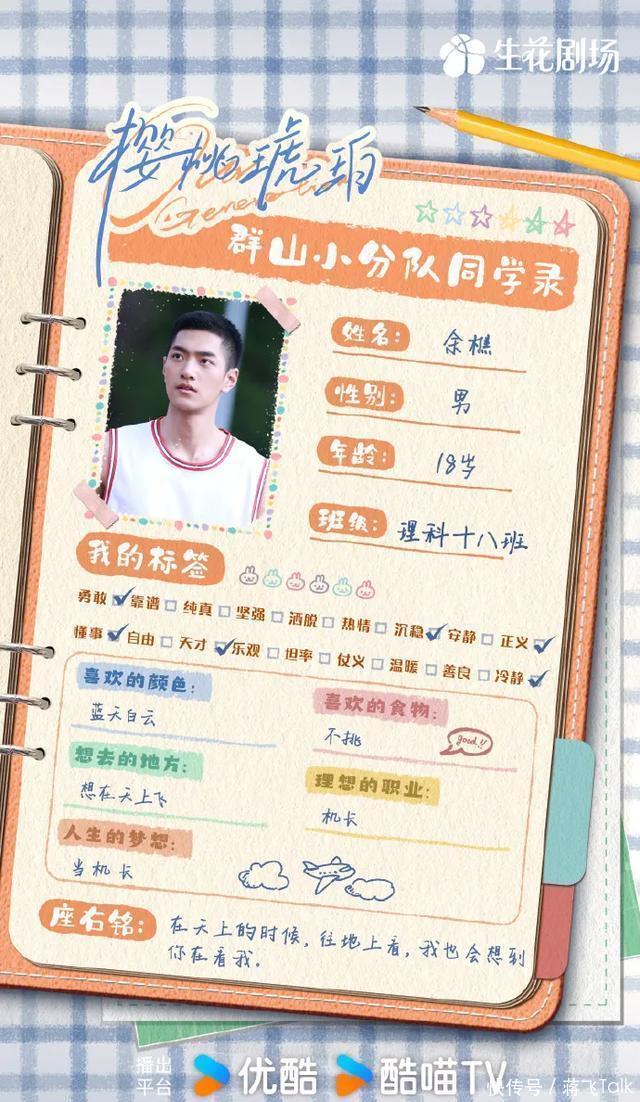 生花剧场
樱桃琥珀
Generation
群山小分队同学录
姓名: 余樵
性别: 男
年龄: 18岁
班级: 理科十八班
我的标签
勇敢 靠谱 纯真 坚强 洒脱 热情 沉稳 安静 正义
懂事 自由 天才 乐观 坦率 仗义 温暖 善良 冷静
喜欢的颜色: 喜欢的食物:
蓝天白云 不挑 good!!
想去的地方: 理想的职业:
想在天上飞 机长
人生的梦想:
当机长
座右铭: 在天上的时候,往地上看,我也会想到
你在看我。
播出平台 优酷 酷喵TV
快传号 / 蒋飞Talk